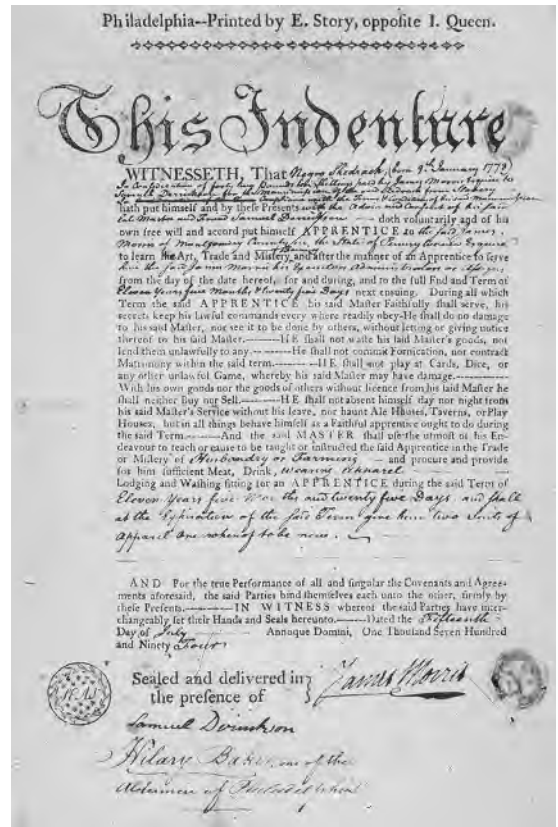 Philadelphia--Printed by E. Story, opposite I. Queen.
This Indenture
WITNESSETH, That Negro Shedrach, (born 9th January 1772)
In Consideration of forty two Pounds ten Shillings paid by James Morris Esquire to
for his Manumission and from Slavery
hath put himself and by these Presents with the Advice and Consent of his said
late Master and Friend Samuel doth voluntarily and of his
own free will and accord put himself APPRENTICE to the said James
Morris of Montgomery County in the State of Pennsylvania Esquire
to learn the Art, Trade and Mistery, and after the manner of an Apprentice to serve
him the said James Morris his Executors Administrators or Assigns
from the day of the date hereof, for and during, and to the full End and Term of
Eleven Years five Months & twenty five Days next ensuing. During all which
Term the said APPRENTICE his said Master Faithfully shall serve, his
secrets keep his lawful commands every where readily obey-He shall do no damage
to his said Master, nor see it to be done by others, without letting or giving notice
thereof to his said Master.--------HE shall not waste his said Master's goods, nor
lend them unlawfully to any--------He shall not commit Fornication, nor contract
Matrimony within the said term.--------HE shall not play at Cards, Dice, or
any other unlawful Game, whereby his said Master may have damage.--------
With his own goods nor the goods of others without licence from his said Master he
shall neither Buy nor Sell.--------HE shall not absent himself day nor night from
his said Master's Service without his leave, nor haunt Ale Houses, Taverns, or Play
Houses, but in all things behave himself as a Faithful apprentice ought to do during
the said Term.--------And the said MASTER shall use the utmost of his En-
deavour to teach or cause to be taught or instructed the said Apprentice in the Trade
or Mistery of Husbandry or Farming and procure and provide
for him sufficient Meat, Drink, Wearing Apparel
Lodging and Washing fitting for an APPRENTICE during the said Term of
Eleven Years five Months and twenty five Days and shall
at the Expiration of the said Term give him two Suits of
Apparel one whereof to be new.
AND For the true Performance of all and singular the Covenants and Agree-
ments aforesaid, the said Parties bind themselves each unto the other, firmly by
these Presents.--------IN WITNESS whereof the said Parties have inter-
changeably set their Hands and Seals hereunto.--------Dated the Fifteenth
Day of July Annoque Domini, One Thousand Seven Hundred
and Ninety Four
Sealed and delivered in
the presence of
James Morris
SEAS
Samuel
Hilary Baker, one of the
Aldermen of Philadelphia